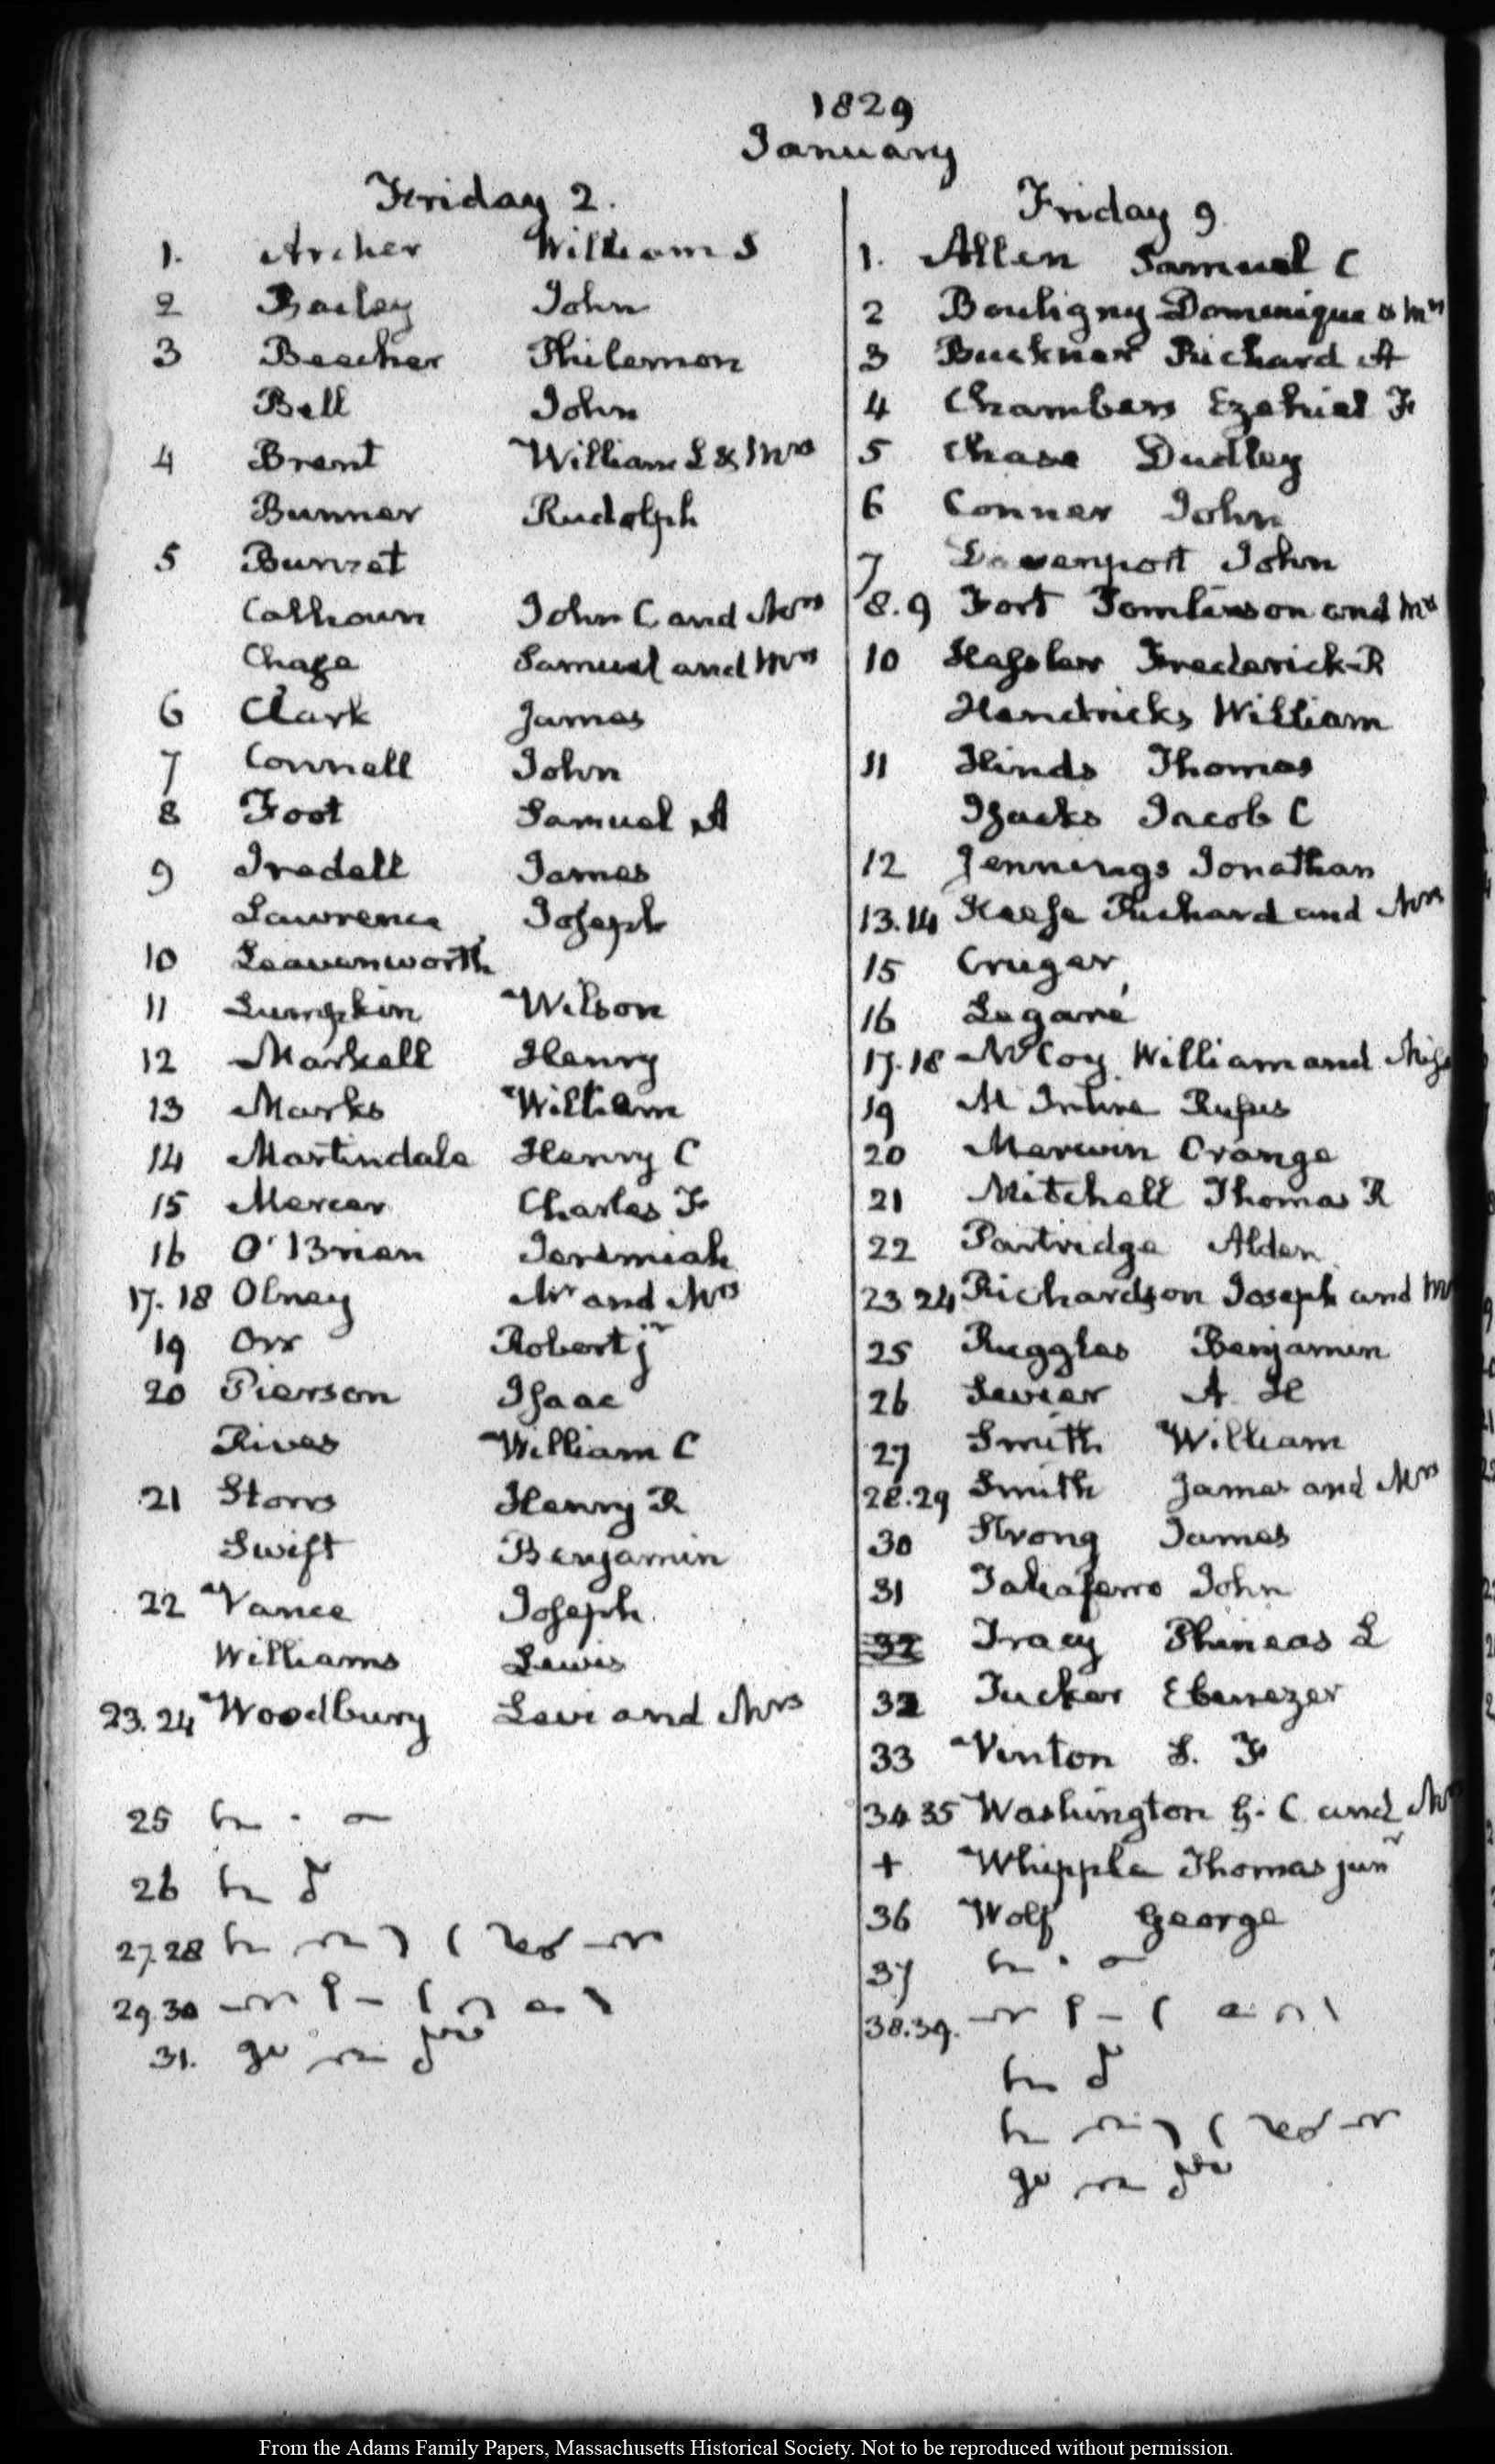 1829
January
Friday 2.
1. Archer William S
2 Bailey John
3 Beecher Philemon
Bell John
4 Brent William L & Mrs
Bunner Rudolph
5 Burret
Calhoun John C and Mrs
Chase Samuel and Mrs
6 Clark James
7 Connell John
8 Foot Samuel A
9 Iredell James
Lawrence Joseph
10 Leavenworth
11 Lumpkin Wilson
12 Markell Henry
13 Marks William
14 Martindale Henry C
15 Mercer Charles F
16 O'Brien Jeremiah
17.18 Olney Mr and Mrs
19 Orr Robert jr
20 Pierson Isaac
Rives William C
21 Storrs Henry R
Swift Benjamin
22 Vance Joseph
Williams Lewis
23.24 Woodbury Levi and Mrs
25
26
27.28
29.30
31.
Friday 9
1. Allen Samuel C
2 Bouligny Dominique & Mrs
3 Buckner Richard A
4 Chambers Ezekiel F
5 Chase Dudley
6 Conner John
7 Davenport John
8.9 Fort Tomlinson and Mrs
10 Hassler Frederick R
Hendricks William
11 Hinds Thomas
Isacks Jacob C
12 Jennings Jonathan
13.14 Keese Richard and Mrs
15 Cruger
16 Legaré
17.18 McCoy William and Miss
19 M Intire Rufus
20 Merwin Orange
21 Mitchell Thomas R
22 Partridge Alden
23 24 Richardson Joseph and
25 Ruggles Benjamin
26 Sevier A H
27 Smith William
28.29 Smith James and Mrs
30 Strong James
31 Taliaferro John
32 Tracy Phineas L
32 Tucker Ebenezer
33 Vinton S. F
34 35 Washington G. C and
+ Whipple Thomas junr
36 Wolf George
37
38.39.
From the Adams Family Papers, Massachusetts Historical Society. Not to be reproduced without permission.